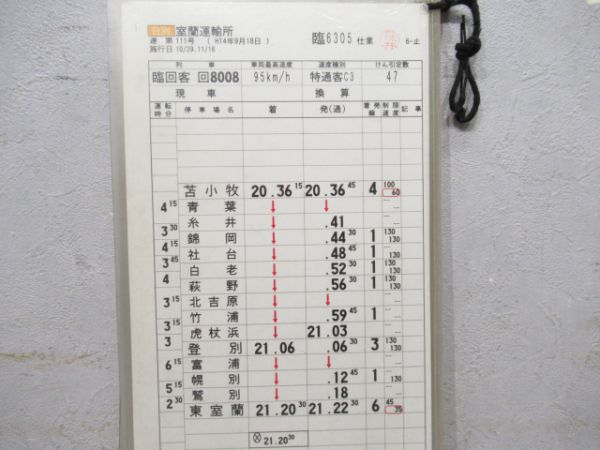 日勤 室蘭運輸所 臨6305 仕業 6-止
運 第111号 ( H14年9月18日 )
施行日 10/29.11/16
列 車 車両最高速度 速度種別 けん引定数
臨回客 回8008 95km/h 特通客C3 47
現 車 換 算
運転時分 停車場名 着 発(通) 着発線 制限速度 記事
苫小牧 20.36 15 20.36 45 4 100 60
4 15 青葉 ↓ ↓
糸井 ↓ .41
3 30 錦岡 ↓ .44 30 1 130 130
4 15 社台 ↓ .48 45 1 130 130
3 45 白老 ↓ .52 30 1 130 130
4 萩野 ↓ .56 30 1 130 130
北吉原 ↓ ↓
3 15 竹浦 ↓ .59 45 1 130 130
3 15 虎杖浜 ↓ 21.03
3 登別 21.06 .06 30 3 130 130
6 15 富浦 ↓ ↓
幌別 ↓ .12 45 1 130
5 15 鷲別 ↓ .18
2 30 東室蘭 21.20 30 21.22 30 6 45 35
21.20 30